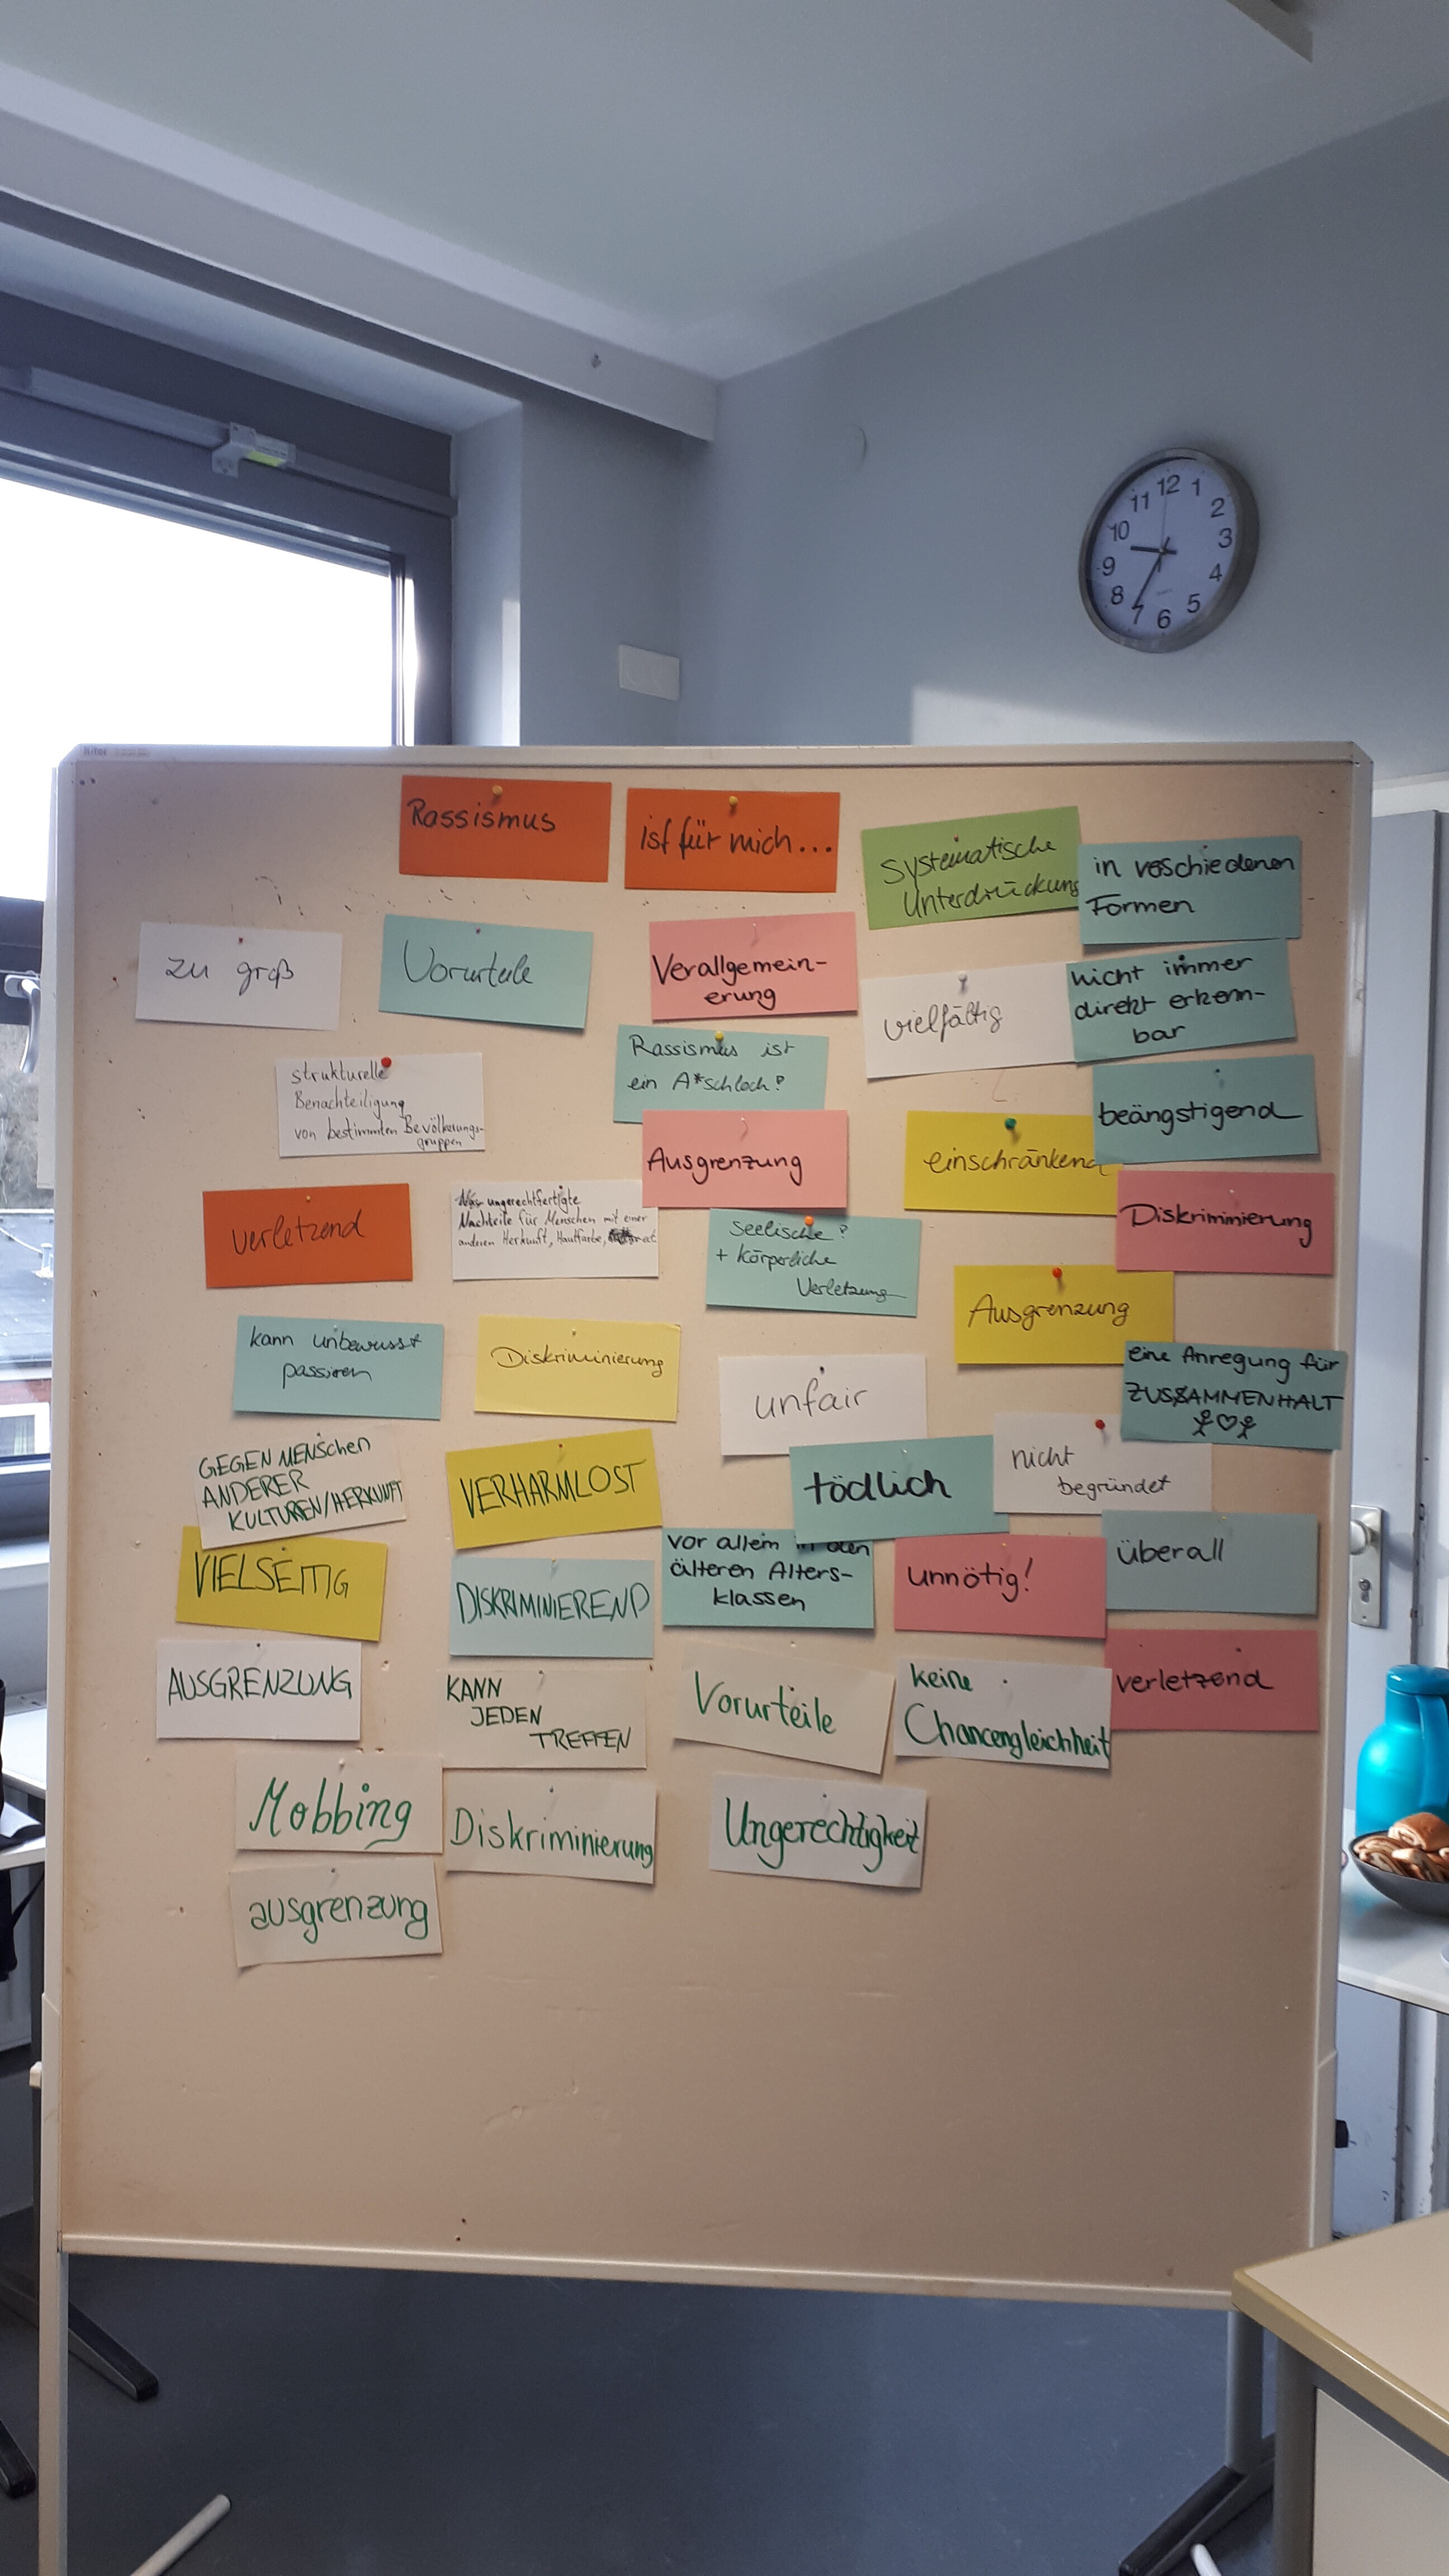 Rassismus
ist für mich...
systematische
Unterdrückung
in veschiedenen
Formen
zu groß
Vorurteile
Verallgemein-
erung
vielfältig
nicht immer
direkt erkenn-
bar
strukturelle
Benachteiligung
von bestimmten Bevölkerungs-
gruppen
Rassismus ist
ein A*schloch?
Ausgrenzung
einschränkend
beängstigend
verletzend
ungerechtfertigte
Nachteile für Menschen mit einer
anderen Herkunft, Hautfarbe,
Seelische?
+ Körperliche
Verletzung
Diskriminierung
Ausgrenzung
kann unbewusst
passieren
Diskriminierung
unfair
eine Anregung für
ZUSAMMENHALT
GEGEN MENSchen
ANDERER
KULTUREN/HERKUNFT
VERHARMLOST
tödlich
nicht
begründet
VIELSEITIG
DISKRIMINIEREND
vor allem in den
älteren Alters-
klassen
unnötig!
überall
AUSGRENZUNG
KANN
JEDEN
TREFFEN
Vorurteile
keine
Chancengleichheit
verletzend
Mobbing
Diskriminierung
Ungerechtigkeit
ausgrenzung
12
1
2
3
4
5
6
7
8
9
10
11